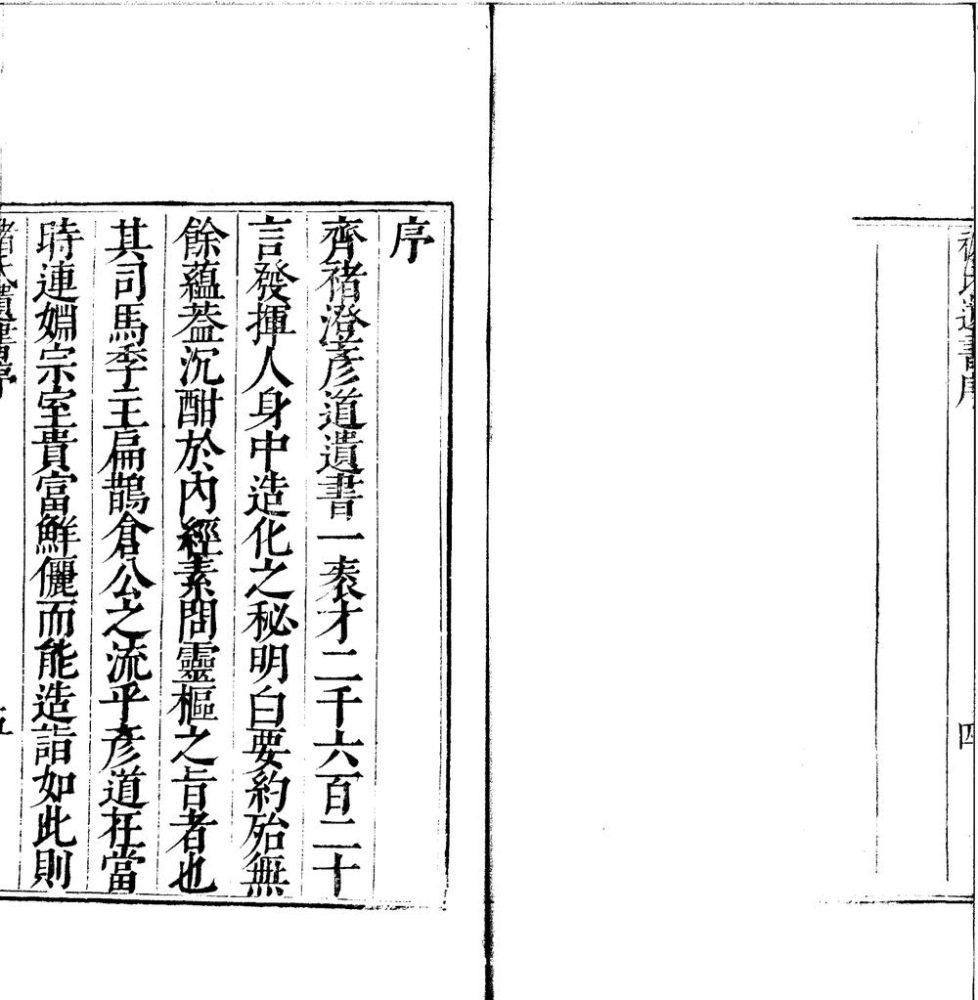 褚氏遺書序
四
序
齊褚澄彥道遺書一袠才二千六百二十
言發揮人身中造化之秘明白要約殆無
餘蘊葢沉酣於內經素問靈樞之旨者也
其司馬季主扁鵲倉公之流乎彥道在當
時連姻宗室貴富鮮儷而能造詣如此則
褚氏遺書序
五